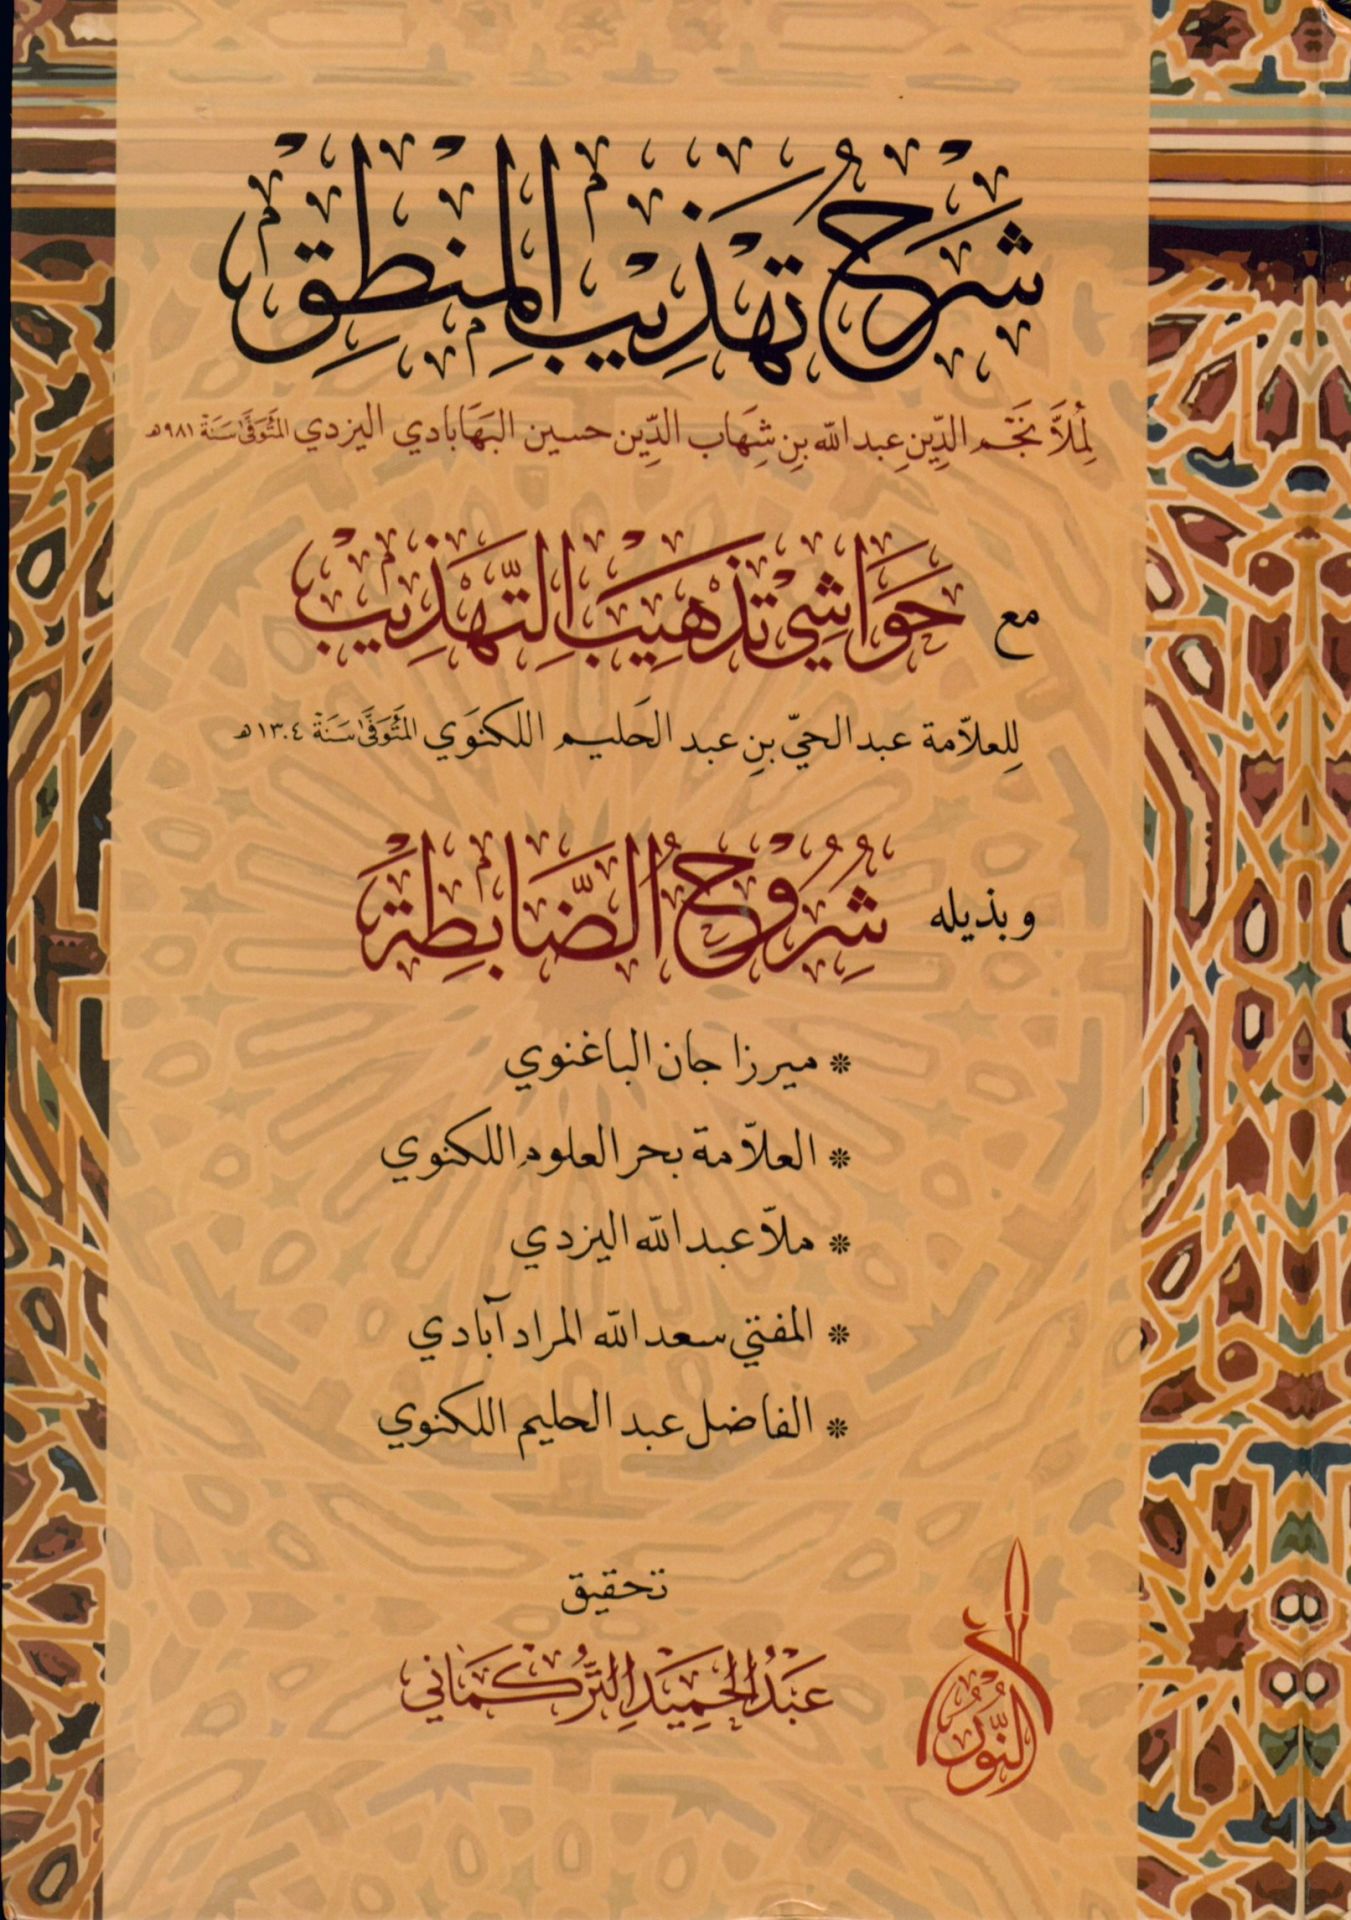 شَرْحُ تَهْذِيبِ الْمَنْطِقِ
لِمُلاَّ نَجْم الدِّينِ عبد الله بنِ شِهَاب الدِّين حسين البَهَابَادي اليزدي المُتَوَفَّى سَنَة ٩٨١هـ
مع حَوَاشِي تَذْهِيبِ التَّهْذِيبِ
لِلعلاّمة عبد الحيّ بنِ عبد الحَليم اللكنَوي المُتَوَفَّى سَنَة ١٣٠٤هـ
وبذيله شُرُوحُ الضَّابِطَةِ
* ميرزا جان الباغنوي
* العلاّمة بحر العلوم اللكنوي
* ملاّ عبد الله اليزدي
* المفتي سعد الله المراد آبادي
* الفاضل عبد الحليم اللكنوي
تحقيق
عَبْدُ الْحَمِيدِ التُّرْكَمَانِي
النُّور